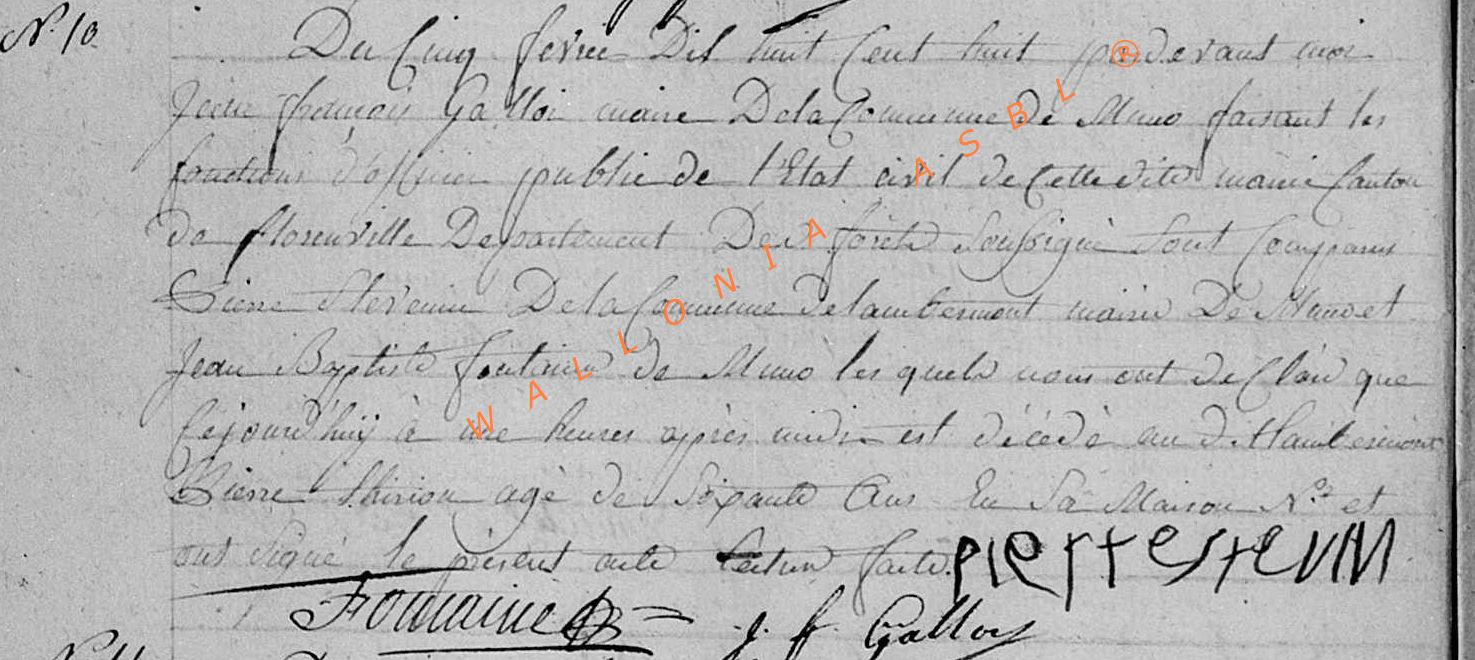 N. 10
Du Cinq fevrier Dix huit Cent huit par devant moi
Jean françois Galloi maire De la Commune De Muno faisant les
fonctions d'officier public de l'Etat civil de Cette dite mairie Canton
de florenville Departement Des forêts Soussigné Sont Comparus
Pierre Stevenin De la Commune de lambermont mairie De Muno et
Jean Baptiste fontaine de Muno les quels nous ont deClaré que
Cejourd'huÿ à une heures après midi est décédé au dit lambermont
Pierre Thiriou agé de Soixante Ans En Sa Maison N.º et
ont Signé le présent acte lecture faite. pierre stevnin
Fontaine J. f. Galloy
WALLONIA ASBL ®